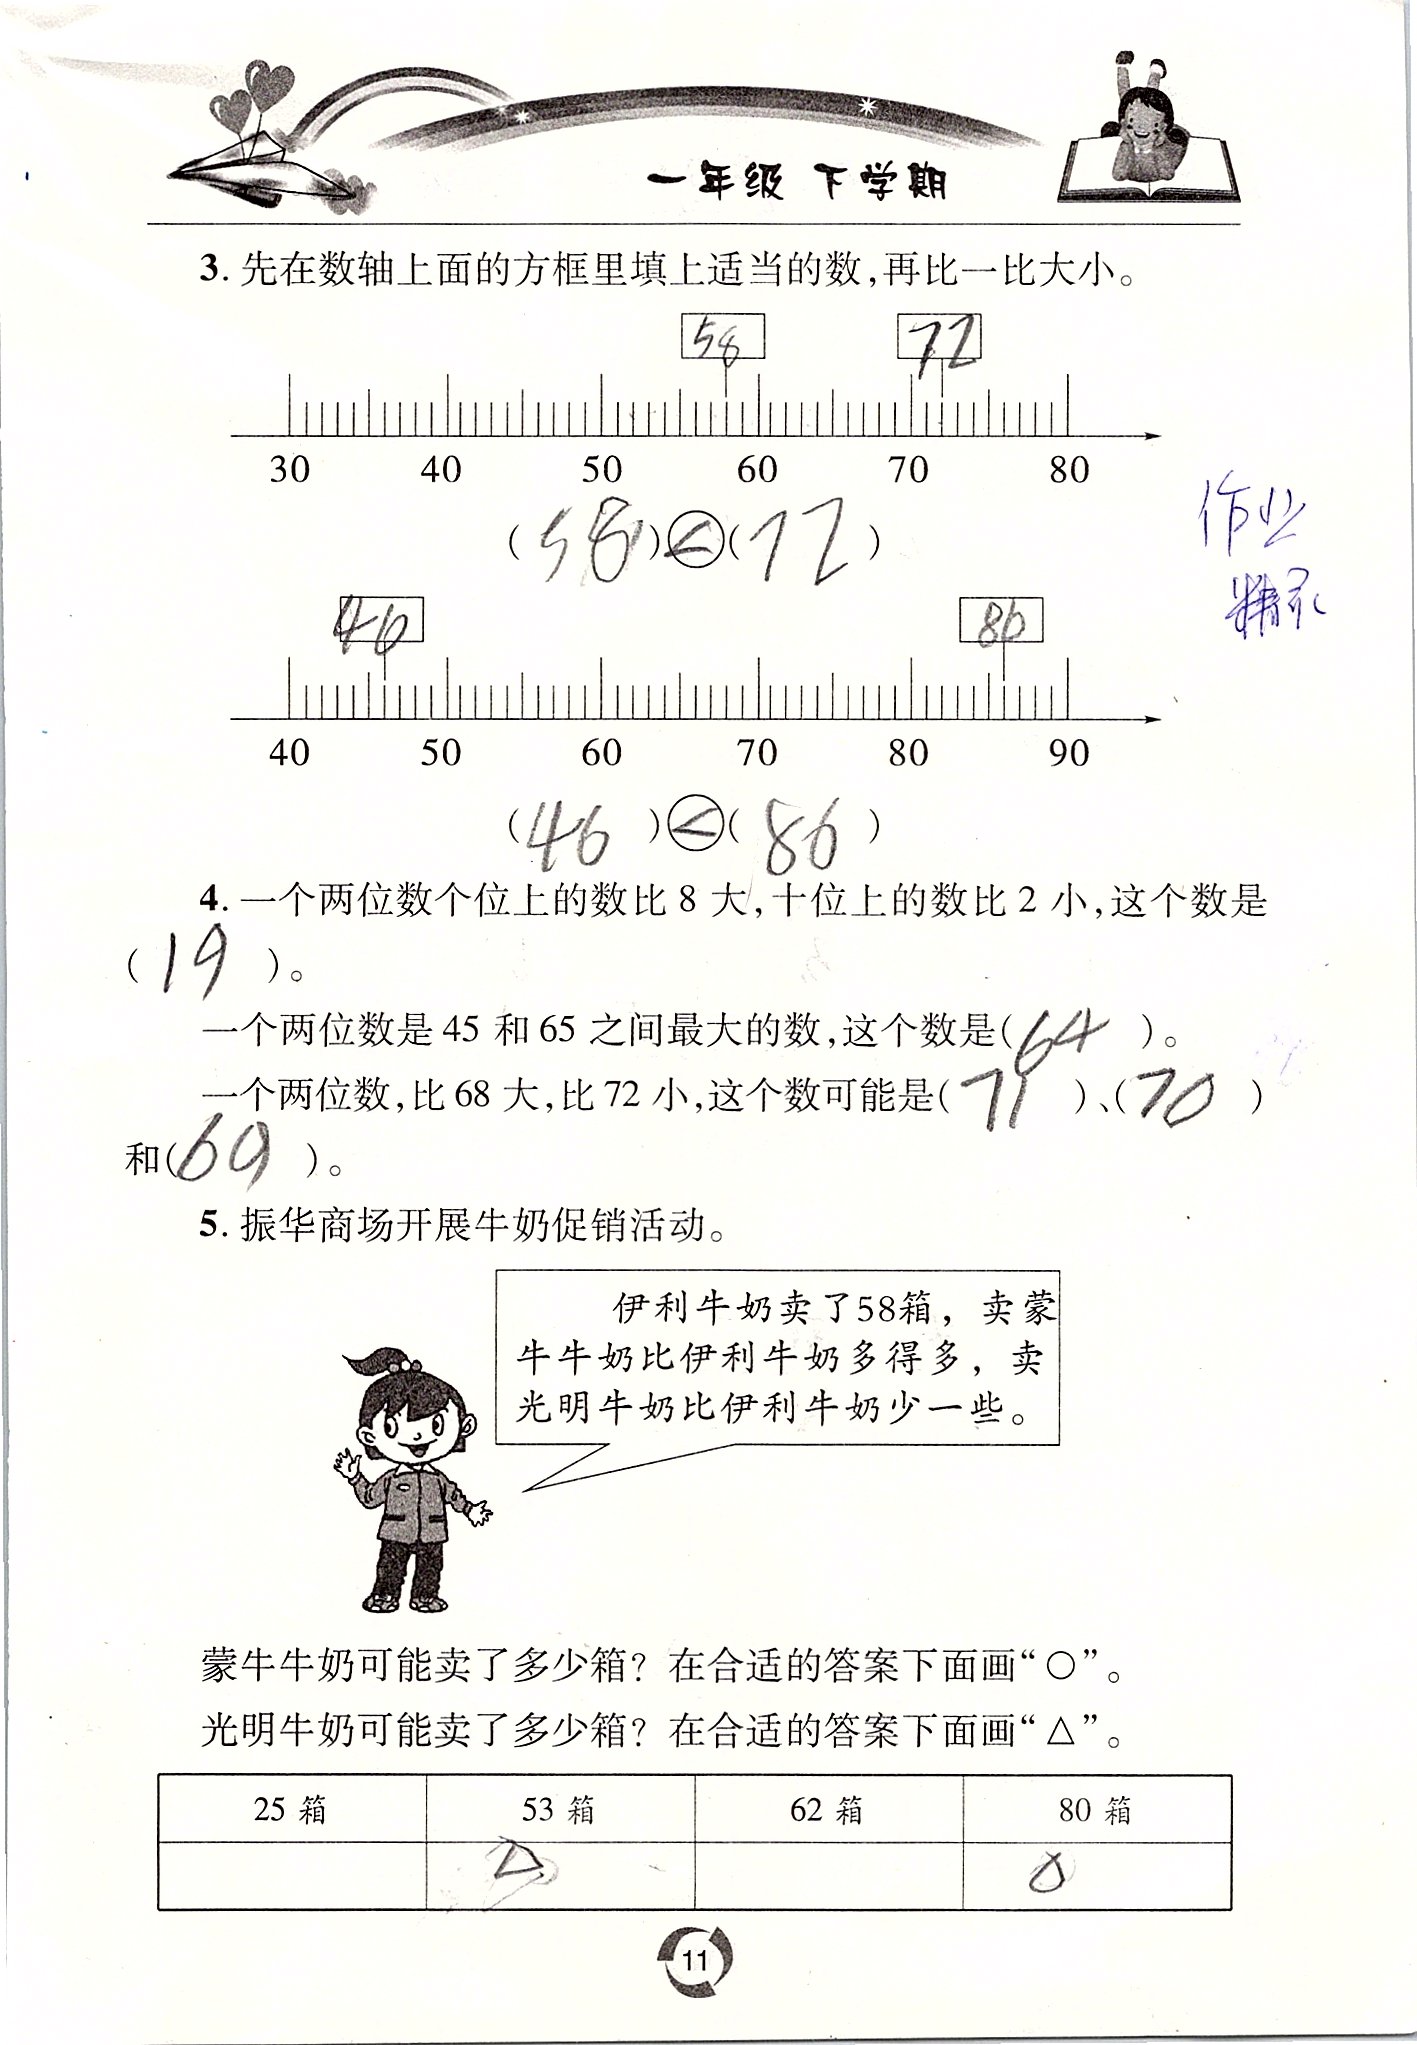 一年级 下学期
3. 先在数轴上面的方框里填上适当的数,再比一比大小。
58 72
30 40 50 60 70 80
(58)<(72)
46 86
40 50 60 70 80 90
(46)<(86)
作业
精灵
4. 一个两位数个位上的数比 8 大,十位上的数比 2 小,这个数是
(19)。
一个两位数是 45 和 65 之间最大的数,这个数是(64)。
一个两位数,比 68 大,比 72 小,这个数可能是(71)、(70)
和(69)。
5. 振华商场开展牛奶促销活动。
伊利牛奶卖了58箱，卖蒙
牛牛奶比伊利牛奶多得多，卖
光明牛奶比伊利牛奶少一些。
蒙牛牛奶可能卖了多少箱? 在合适的答案下面画“○”。
光明牛奶可能卖了多少箱? 在合适的答案下面画“△”。
25 箱 53 箱 62 箱 80 箱
△ ○
11